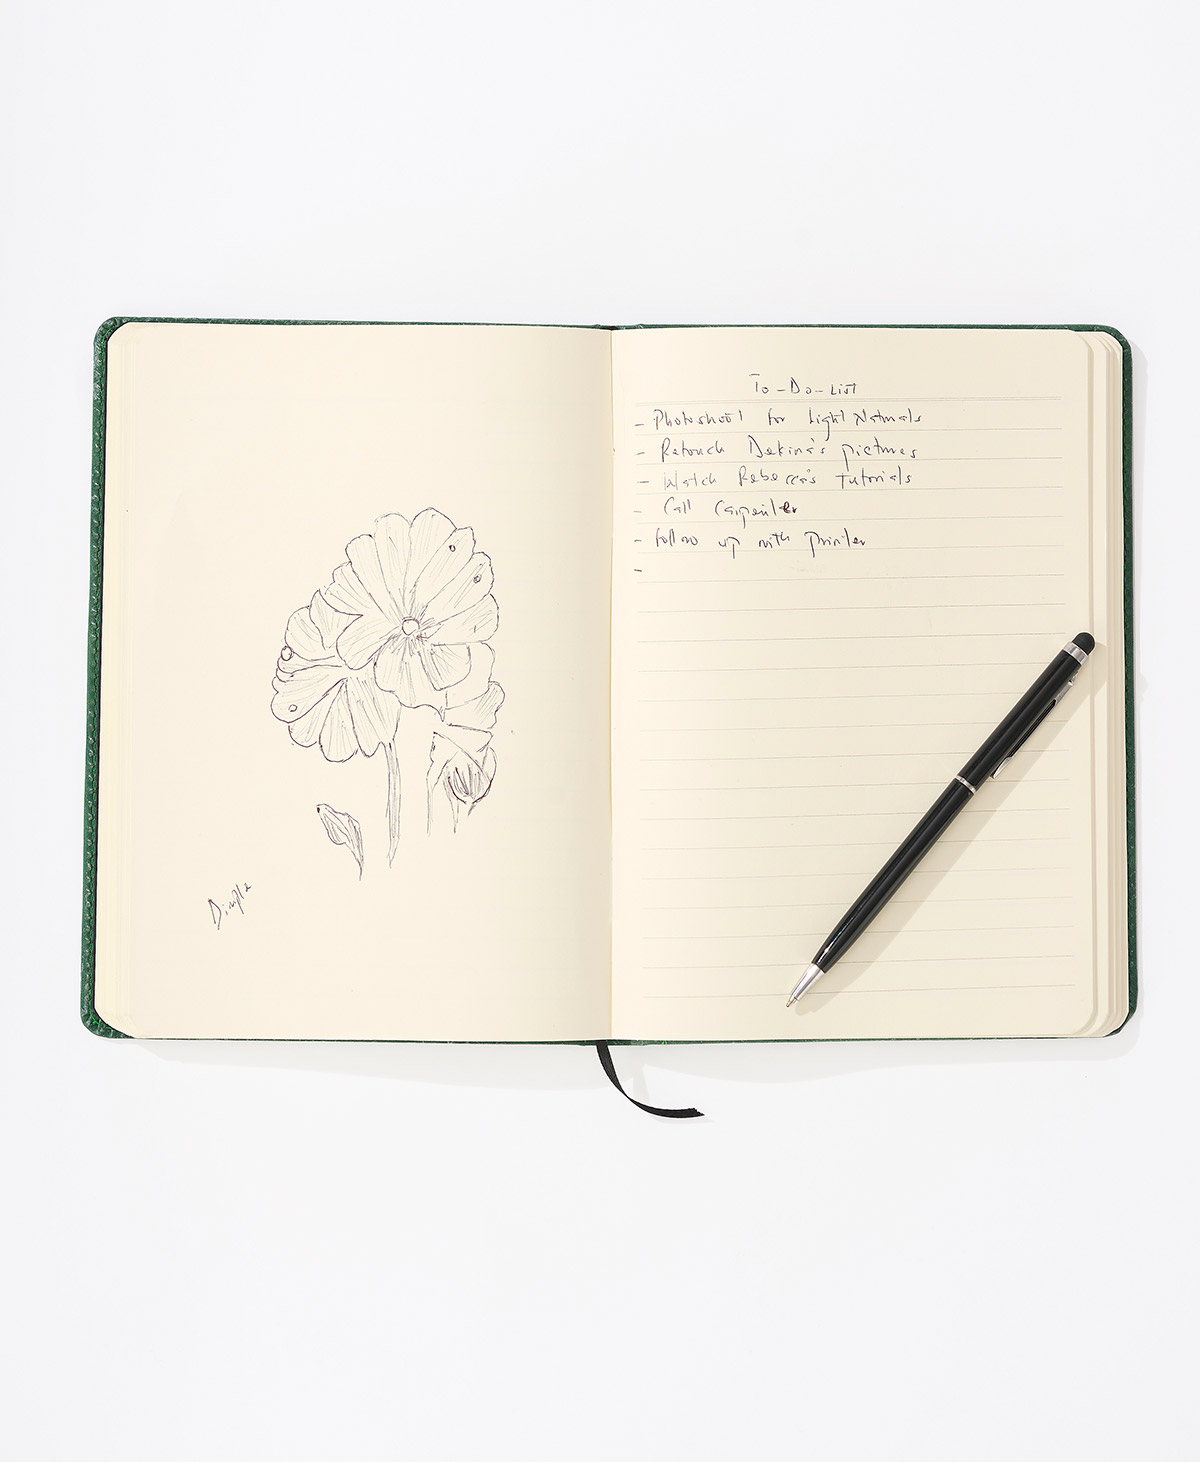 Dimple
To-Do-List
- Photoshoot for Light Naturals
- Retouch Dekina's pictures
- Watch Rebecca's Tutorials
- Call Carpenter
- follow up with printer
-